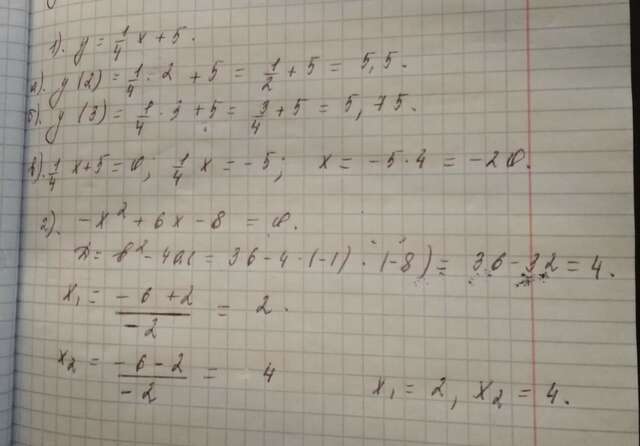 1). y = 1/4 x + 5.
а). y(2) = 1/4 · 2 + 5 = 1/2 + 5 = 5,5.
б). y(3) = 1/4 · 3 + 5 = 3/4 + 5 = 5,75.
в). 1/4 x + 5 = 0; 1/4 x = -5; x = -5·4 = -20.
2). -x² + 6x - 8 = 0.
D = b² - 4ac = 36 - 4·(-1)·(-8) = 36 - 32 = 4.
x₁ = (-6 + 2)/(-2) = 2.
x₂ = (-6 - 2)/(-2) = 4
x₁ = 2, x₂ = 4.